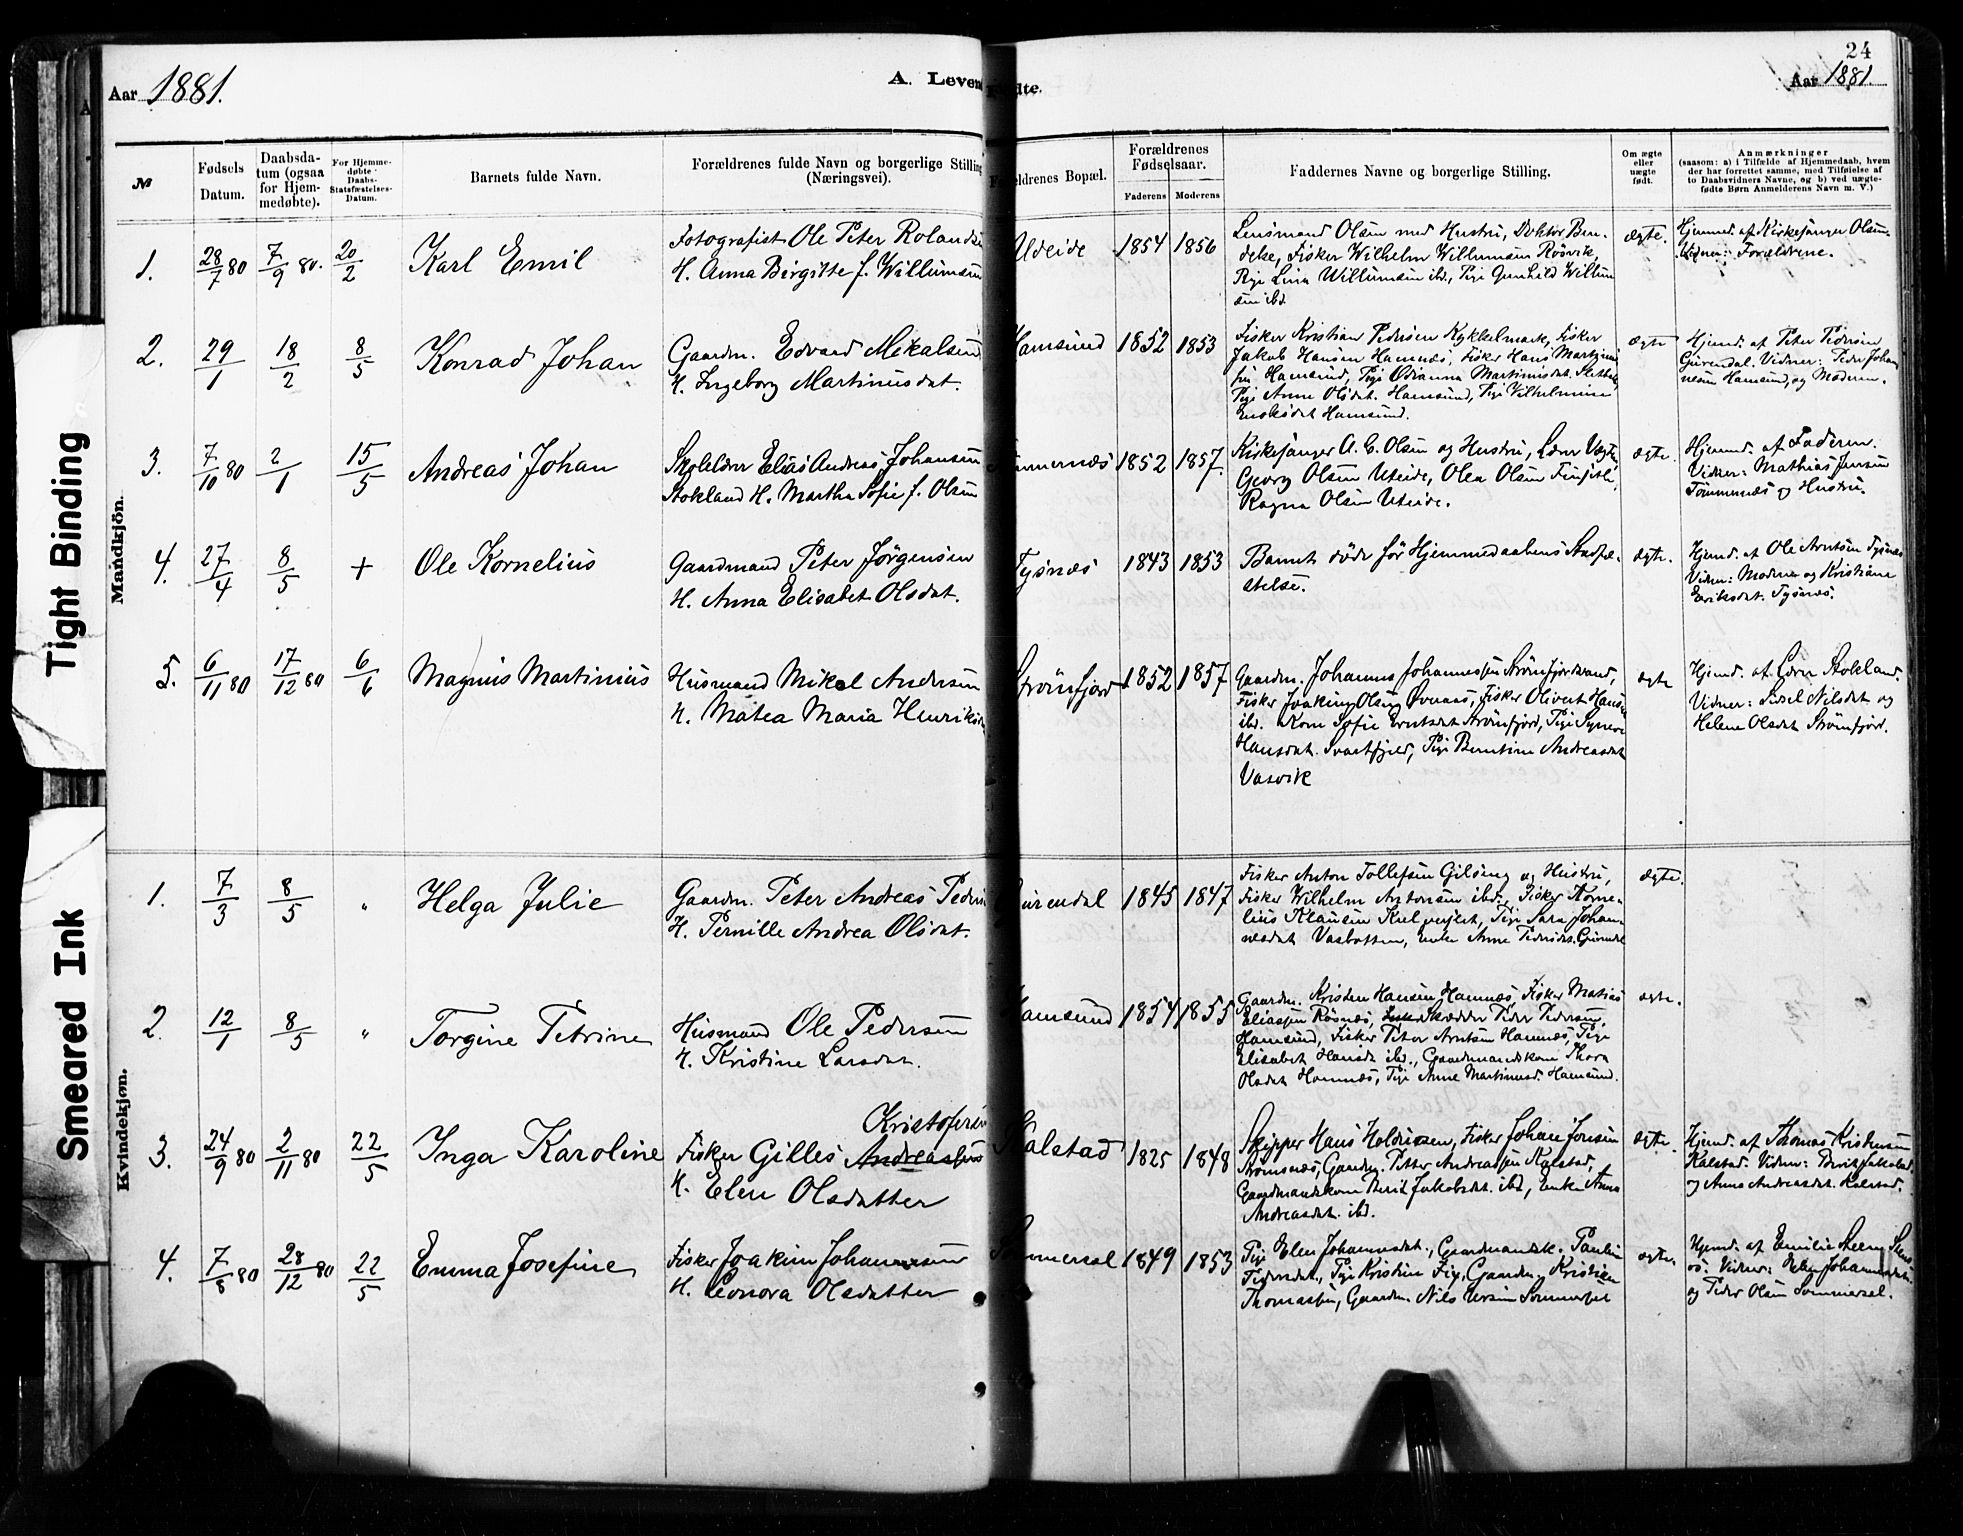 24
Aar 1881.
A. Leven
dte.
Aar 1881.
№
Fødsels Datum.
Daabsda-tum (ogsaa for Hjem-medøbte).
For Hjemme-døbte Daabs-Statsfæstelses-Datum.
Barnets fulde Navn.
Forældrenes fulde Navn og borgerlige Stilling (Næringsvei).
ældrenes Bopæl.
Forældrenes Fødselsaar.
Faderens
Moderens
Faddernes Navne og borgerlige Stilling.
Om ægte eller uægte født.
Anmærkninger
(saasom: a) i Tilfælde af Hjemmedaab, hvem
der har forrettet samme, med Tilføielse af
to Daabsvidners Navne, og b) ved uægte-
fødte Børn Anmelderens Navn m. V.)
Mandkjön.
1. 28/7 80 7/9 80. 20/2 Karl Emil
Fotografist Ole Peter Rolands
H. Anna Birgitte f. Willumsen
Uteide 1854 1856
Lensmand Olsen med Hustru, Doktor Ben-
deke, Fisker Wilhelm Willumsen Rösvik,
Pige Lina Willumsen ibd., Pige Gunhild Willum
sen ibd.
ægte.
Hjemmed. af Kirkesanger Olsen.
Vidner: Forældrene.
2. 29/1 18/2 8/5 Konrad Johan
Gaardm. Edvard Mikalsen
H. Ingeborg Martinusdat.
Hamsund 1852 1853
Fisker Kristian Pedersen Kykkelmark, Fisker
Jakob Hansen Hamnæs, Fisker Hans Martinus
sen Hamsund, Pige Odianna Martinusdat.
Pige Anne Olsdat. Hamsund, Pige Vilhelmine
Hamsund.
ægte
Hjemd. af Peter Pedersen
Gürendal. Vidner: Peder Johan
nesen Hamsund, og Moderen.
3. 7/10 80 2/1 15/5 Andreas Johan
Skolelærer Elias Andreas Johansen
Stokland H. Martha Sofie f. Olsen
1852 1857.
Kirkesanger A. C. Olsen og Hustru, Lærer
Georg Olsen Uteide, Olea Olsen
Ragna Olsen Uteide.
ægte.
Hjemd. af Faderen.
Vidner: Mathias Jensen
Tömmernæs og Hustru.
4. 27/4 8/5 + Ole Kornelius
Gaardmand Peter Jørgensen
H. Anna Elisabet Olsdat.
Tysnæs 1843 1853
Barnet døde før Hjemmedaabens Stadfæ-
stelse.
ægte.
Hjemd. af Ole Arntsen Tysnæs
Vidner: Moderen og Kristiane
Eriksdat. Tysnæs.
5. 6/11 80 17/12 80 6/6 Magnus Martinius
Husmand Mikal Andersen
H. Matea Maria Henriksd
Strömfjord 1852 1857
Gaardm. Johannes Johannessen Strömfjordstrand,
Fisker Joakim Olsen Fisker Olivert Hansen
ibd. Kone Sofie Arntsdat Strömfjord, Pige Synove
Hansdat. Svartfjeld, Pige Berntine Andreasdat
Vasvik
ægte
Hjemd. af Lærer Stokland.
Vidner: Sirsel Nilsdat og
Helene Olsdat Strömfjord.
Kvindekjøn.
1. 7/3 8/5 " Helga Julie
Gaardm. Peter Andreas Peders
H. Pernille Andrea Olsdat.
Gürendal 1845 1847
Fisker Anton Tollefsen Gilseng og Hustru,
Fisker Wilhelm Antonsen ibd., Fisker Korne-
lius Klausen Pige Sara Johan
nesdat Vasbotten, Enke Anne Pedersdat. Gürendal
ægte.
2. 12/1 8/5 " Torgine Petrine
Husmand Ole Pedersen
H. Kristine Larsdat.
Hamsund 1854 1855
Gaardm. Kristen Hansen Hamnæs, Fisker Matias
Eliassen Rösnæs, Skrædder Peder Pedersen,
Hamsund, Fisker Peter Arntsen Hamnæs, Pige
Elisabet Hansd. ibd., Gaardmandskone Thora
Olsdat Hamnæs, Pige Anne Martinusd. Hamsund.
ægte.
3. 24/9 80 2/11 80 22/5 Inga Karoline
Kristofersen
Fisker Gilles Andreassen
H. Elen Olsdatter
Kalstad 1825 1848
Skipper Hans Fisker Johan Jonsen
Strømsnæs, Gaardm. Petter Andreassen Kalstad,
Gaardmandskone Berit Jakobsdat. ibd., Enke Anna
Andreasdat. ibd.
ægte.
Hjemd. af Thomas Kristensen
Kalstad. Vidner: Berit Jakobsd.
og Anna Andreasdat. Kalstad.
4. 7/8 80 28/12 80 22/5 Emma Josefine
Fisker Joakim Johannessen
H. Leonora Olsdatter
Sommersel 1849 1853
Pige Elen Johannesdat., Gaardmandsk. Pauline
Pedersdat., Pige Kristine Fix, Gaardm. Kristian
Thomassen, Gaardm. Nils Ursin Sommersel
ægte.
Hjemd. af Emilie Steen
Vidner: Elen Johannesdat.
og Peder Olsen Sommersel.
Tight Binding
Smeared Ink